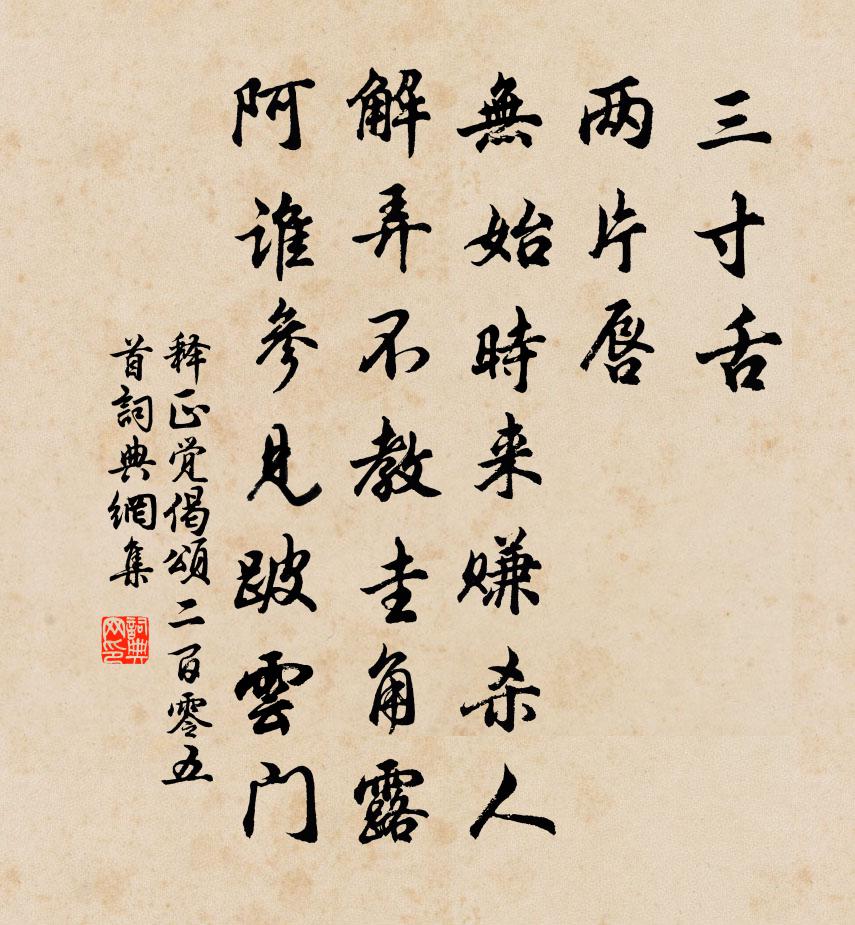 三寸舌
两片唇
無始時来赚杀人
解弄不教圭角露
阿谁參見跛雲门
释正觉偈頌二百零五
首詞典網集
詞典
网印